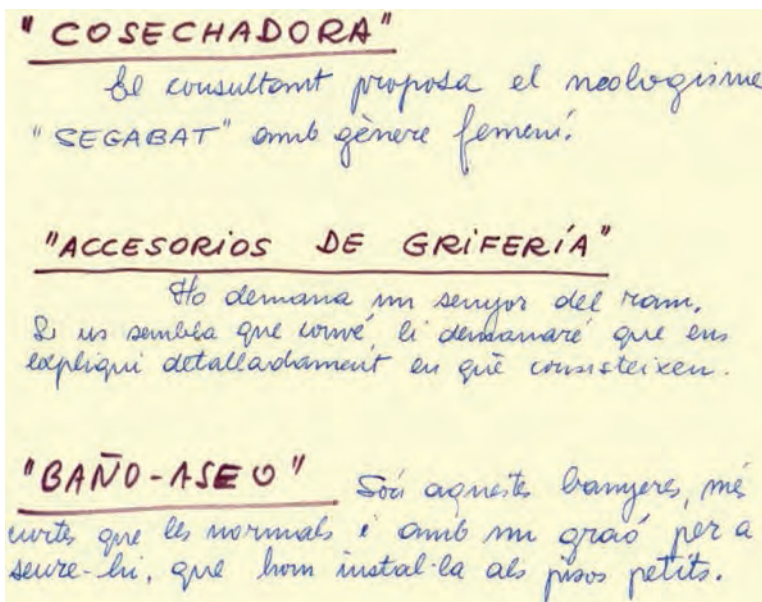 "COSECHADORA"
El consultant proposa el neologisme
"SEGABAT" amb gènere femení.
"ACCESORIOS DE GRIFERÍA"
Ho demana un senyor del ram.
Si us sembla que convé, li demanaré que ens
expliqui detalladament en què consisteixen.
"BAÑO-ASEO" Són aquestes banyeres, més
curtes que les normals i amb un graó per a
seure-hi, que hom instal·la als pisos petits.